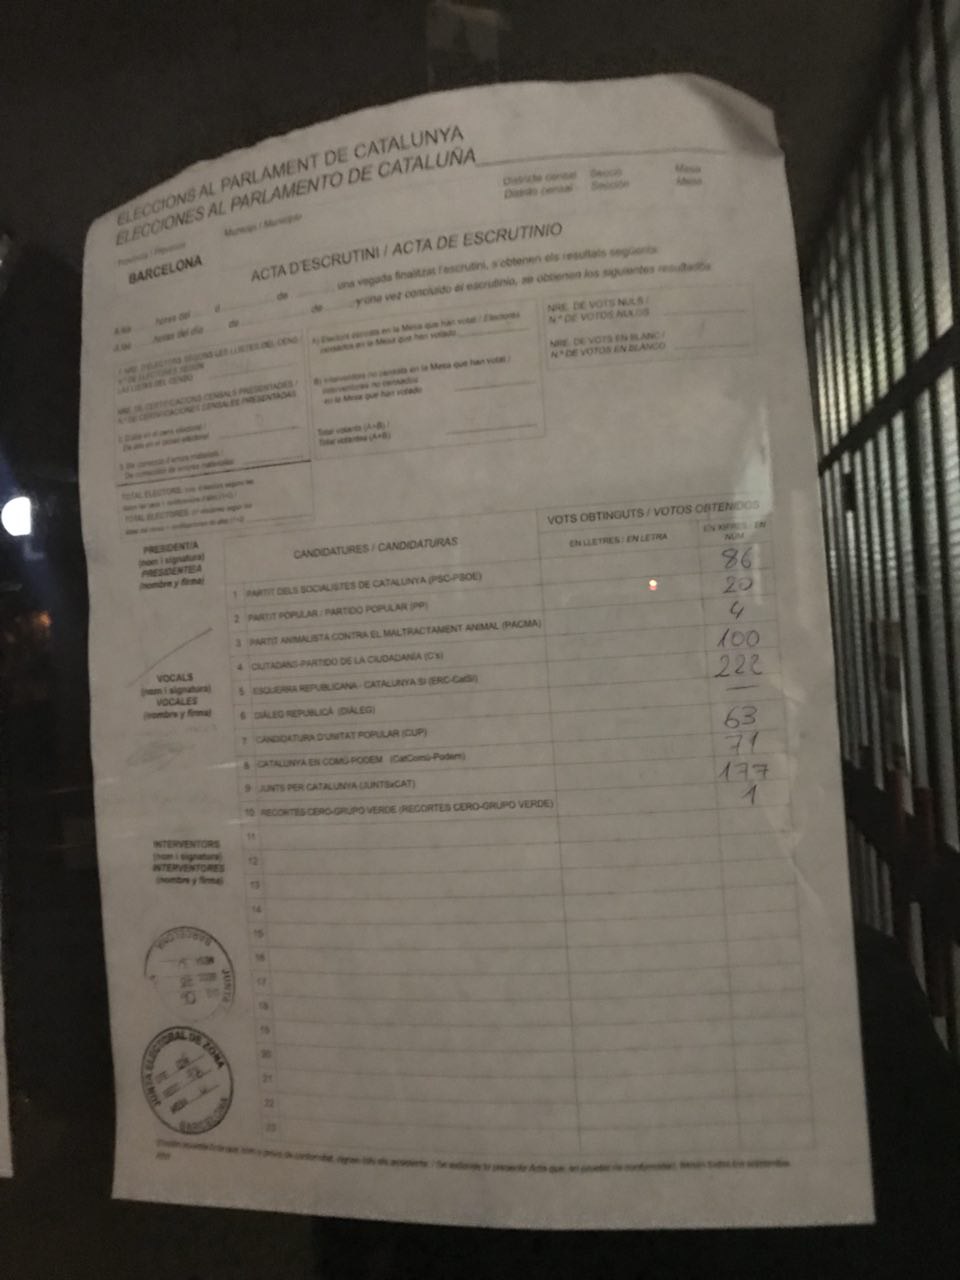 ELECCIONS AL PARLAMENT DE CATALUNYA
ELECCIONES AL PARLAMENTO DE CATALUÑA
Districte censal Secció Mesa
Distrito censal Sección Mesa
Província / Provincia Municipi / Municipio
BARCELONA
ACTA D'ESCRUTINI / ACTA DE ESCRUTINIO
A les hores del d de una vegada finalitzat l'escrutini, s'obtenen els resultats següents:
A las horas del día de de y una vez concluido el escrutinio, se obtienen los siguientes resultados
1. NRE. D'ELECTORS SEGONS LES LLISTES DEL CENS
N.º DE ELECTORES SEGÚN
LAS LISTAS DEL CENSO
NRE. DE CERTIFICACIONS CENSALS PRESENTADES /
N.º DE CERTIFICACIONES CENSALES PRESENTADAS
A) Electors censats en la Mesa que han votat / Electores
censados en la Mesa que han votado
B) Interventors no censats en la Mesa que han votat /
Interventores no censados
en la Mesa que han votado
Total votants (A+B) /
Total votantes (A+B)
NRE. DE VOTS NULS /
N.º DE VOTOS NULOS
NRE. DE VOTS EN BLANC /
N.º DE VOTOS EN BLANCO
TOTAL ELECTORS
TOTAL ELECTORES
PRESIDENT/A
(nom i signatura)
PRESIDENTE/A
(nombre y firma)
VOCALS
(nom i signatura)
VOCALES
(nombre y firma)
INTERVENTORS
(nom i signatura)
INTERVENTORES
(nombre y firma)
CANDIDATURES / CANDIDATURAS
VOTS OBTINGUTS / VOTOS OBTENIDOS
EN LLETRES : EN LETRA
EN XIFRES : EN NÚM.
1 PARTIT DELS SOCIALISTES DE CATALUNYA (PSC-PSOE) 86
2 PARTIT POPULAR / PARTIDO POPULAR (PP) 20
3 PARTIT ANIMALISTA CONTRA EL MALTRACTAMENT ANIMAL (PACMA) 4
4 CIUTADANS-PARTIDO DE LA CIUDADANÍA (C's) 100
5 ESQUERRA REPUBLICANA - CATALUNYA SÍ (ERC-CatSí) 222
6 DIÀLEG REPUBLICÀ (DIÀLEG) —
7 CANDIDATURA D'UNITAT POPULAR (CUP) 63
8 CATALUNYA EN COMÚ-PODEM (CatComú-Podem) 71
9 JUNTS PER CATALUNYA (JUNTSxCAT) 177
10 RECORTES CERO-GRUPO VERDE (RECORTES CERO-GRUPO VERDE) 1
11
12
13
14
15
16
17
18
19
20
21
22
23
BARCELONA
JUNTA
JUNTA ELECTORAL DE ZONA
BARCELONA